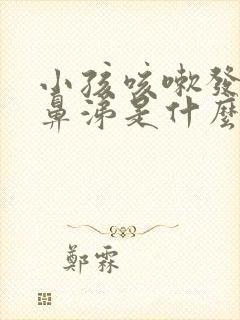 小孩咳嗽發
鼻涕是什麼
鄭霖